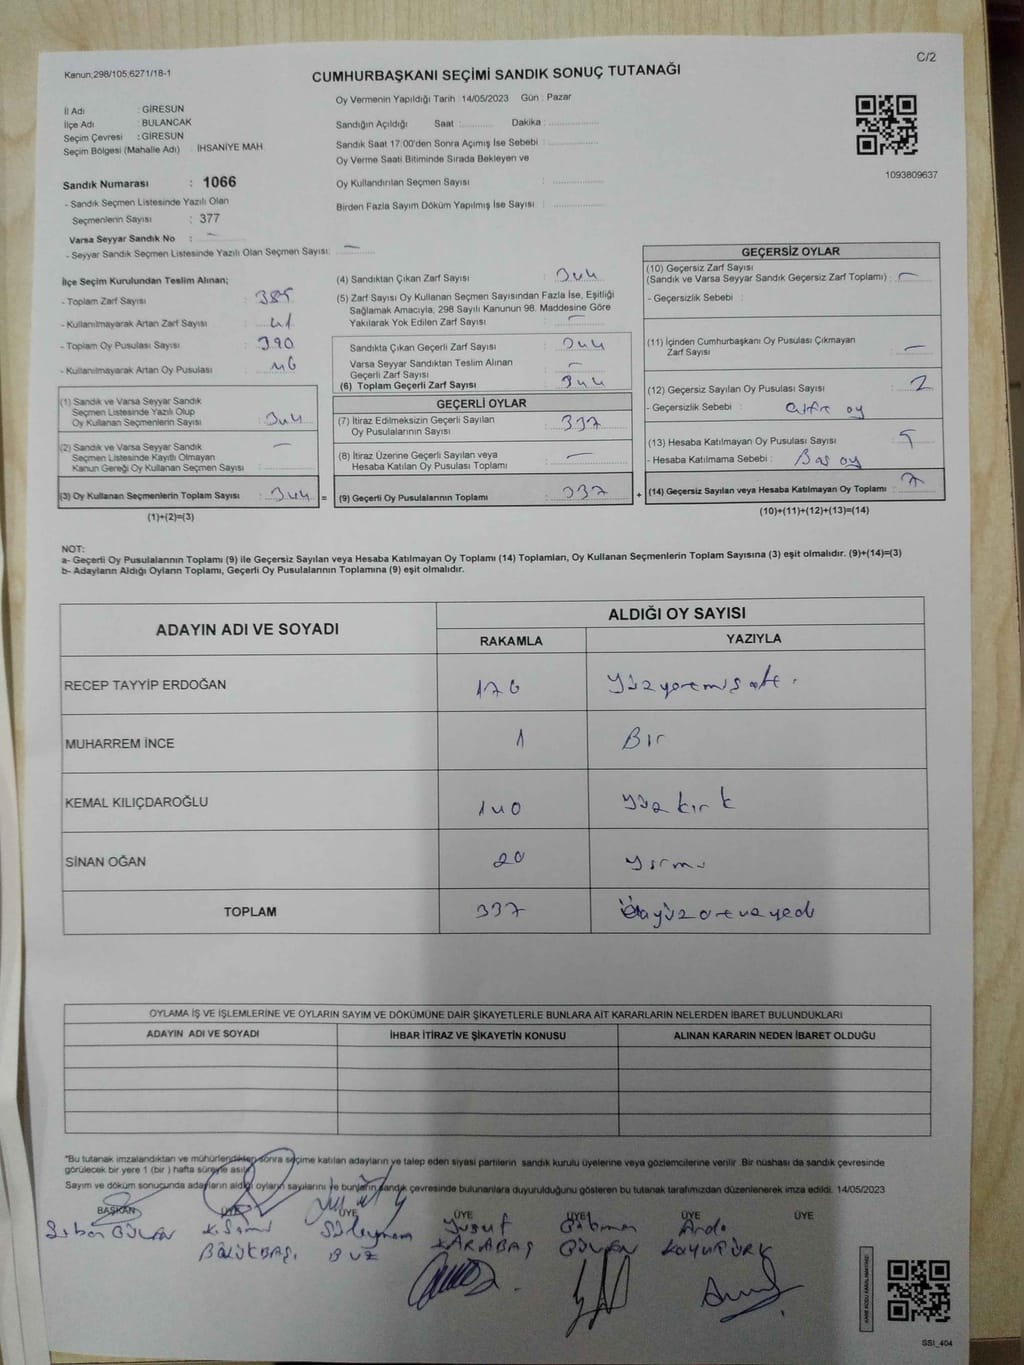 Kanun,298/105;6271/18-1
C/2
CUMHURBAŞKANI SEÇİMİ SANDIK SONUÇ TUTANAĞI
İl Adı : GİRESUN
İlçe Adı : BULANCAK
Seçim Çevresi : GİRESUN
Seçim Bölgesi (Mahalle Adı) : İHSANİYE MAH.
Sandık Numarası : 1066
- Sandık Seçmen Listesinde Yazılı Olan
Seçmenlerin Sayısı : 377
Varsa Seyyar Sandık No : —
- Seyyar Sandık Seçmen Listesinde Yazılı Olan Seçmen Sayısı: —
Oy Vermenin Yapıldığı Tarih : 14/05/2023 Gün : Pazar
Sandığın Açıldığı Saat : Dakika :
Sandık Saat 17:00'den Sonra Açımış İse Sebebi :
Oy Verme Saati Bitiminde Sırada Bekleyen ve
Oy Kullandırılan Seçmen Sayısı :
Birden Fazla Sayım Döküm Yapılmış İse Sayısı :
1093809637
İlçe Seçim Kurulundan Teslim Alınan;
- Toplam Zarf Sayısı : 385
- Kullanılmayarak Artan Zarf Sayısı : 41
- Toplam Oy Pusulası Sayısı : 390
- Kullanılmayarak Artan Oy Pusulası : 46
(1) Sandık ve Varsa Seyyar Sandık
Seçmen Listesinde Yazılı Olup
Oy Kullanan Seçmenlerin Sayısı : 344
(2) Sandık ve Varsa Seyyar Sandık
Seçmen Listesinde Kayıtlı Olmayan
Kanun Gereği Oy Kullanan Seçmen Sayısı : —
(3) Oy Kullanan Seçmenlerin Toplam Sayısı : 344 =
(1)+(2)=(3)
(4) Sandıktan Çıkan Zarf Sayısı : 344
(5) Zarf Sayısı Oy Kullanan Seçmen Sayısından Fazla İse, Eşitliği
Sağlamak Amacıyla, 298 Sayılı Kanunun 98. Maddesine Göre
Yakılarak Yok Edilen Zarf Sayısı : —
Sandıkta Çıkan Geçerli Zarf Sayısı : 344
Varsa Seyyar Sandıktan Teslim Alınan
Geçerli Zarf Sayısı : —
(6) Toplam Geçerli Zarf Sayısı : 344
GEÇERLİ OYLAR
(7) İtiraz Edilmeksizin Geçerli Sayılan
Oy Pusulalarının Sayısı : 337
(8) İtiraz Üzerine Geçerli Sayılan veya
Hesaba Katılan Oy Pusulası Toplamı : —
(9) Geçerli Oy Pusulalarının Toplamı : 337 +
GEÇERSİZ OYLAR
(10) Geçersiz Zarf Sayısı
(Sandık ve Varsa Seyyar Sandık Geçersiz Zarf Toplamı) : —
- Geçersizlik Sebebi :
(11) İçinden Cumhurbaşkanı Oy Pusulası Çıkmayan
Zarf Sayısı : —
(12) Geçersiz Sayılan Oy Pusulası Sayısı : 2
- Geçersizlik Sebebi : oy
(13) Hesaba Katılmayan Oy Pusulası Sayısı : 5
- Hesaba Katılmama Sebebi : Boş oy
(14) Geçersiz Sayılan veya Hesaba Katılmayan Oy Toplamı : 7
(10)+(11)+(12)+(13)=(14)
NOT:
a- Geçerli Oy Pusulalarının Toplamı (9) ile Geçersiz Sayılan veya Hesaba Katılmayan Oy Toplamı (14) Toplamları, Oy Kullanan Seçmenlerin Toplam Sayısına (3) eşit olmalıdır. (9)+(14)=(3)
b- Adayların Aldığı Oyların Toplamı, Geçerli Oy Pusulalarının Toplamına (9) eşit olmalıdır.
ADAYIN ADI VE SOYADI
ALDIĞI OY SAYISI
RAKAMLA YAZIYLA
RECEP TAYYİP ERDOĞAN 176 yüzyetmişaltı
MUHARREM İNCE 1 Bir
KEMAL KILIÇDAROĞLU 140 yüzkırk
SİNAN OĞAN 20 yirmi
TOPLAM 337 üçyüzotuzyedi
OYLAMA İŞ VE İŞLEMLERİNE VE OYLARIN SAYIM VE DÖKÜMÜNE DAİR ŞİKAYETLERLE BUNLARA AİT KARARLARIN NELERDEN İBARET BULUNDUKLARI
ADAYIN ADI VE SOYADI İHBAR İTİRAZ VE ŞİKAYETİN KONUSU ALINAN KARARIN NEDEN İBARET OLDUĞU
*Bu tutanak imzalandıktan ve mühürlendikten sonra seçime katılan adayların ve talep eden siyasi partilerin sandık kurulu üyelerine veya gözlemcilerine verilir .Bir nüshası da sandık çevresinde
görülecek bir yere 1 (bir ) hafta süreyle asılır.
Sayım ve döküm sonucunda adayların aldığı oyların sayılarını ve bunların sandık çevresinde bulunanlara duyurulduğunu gösteren bu tutanak tarafımızdan düzenlenerek imza edildi. 14/05/2023
BAŞKAN ÜYE ÜYE ÜYE ÜYE ÜYE ÜYE
GÜVEN K.Sami Süleyman Yusuf Arda
BÖLÜKBAŞI BUZ KARABAŞ GÜVEN
SSI_404